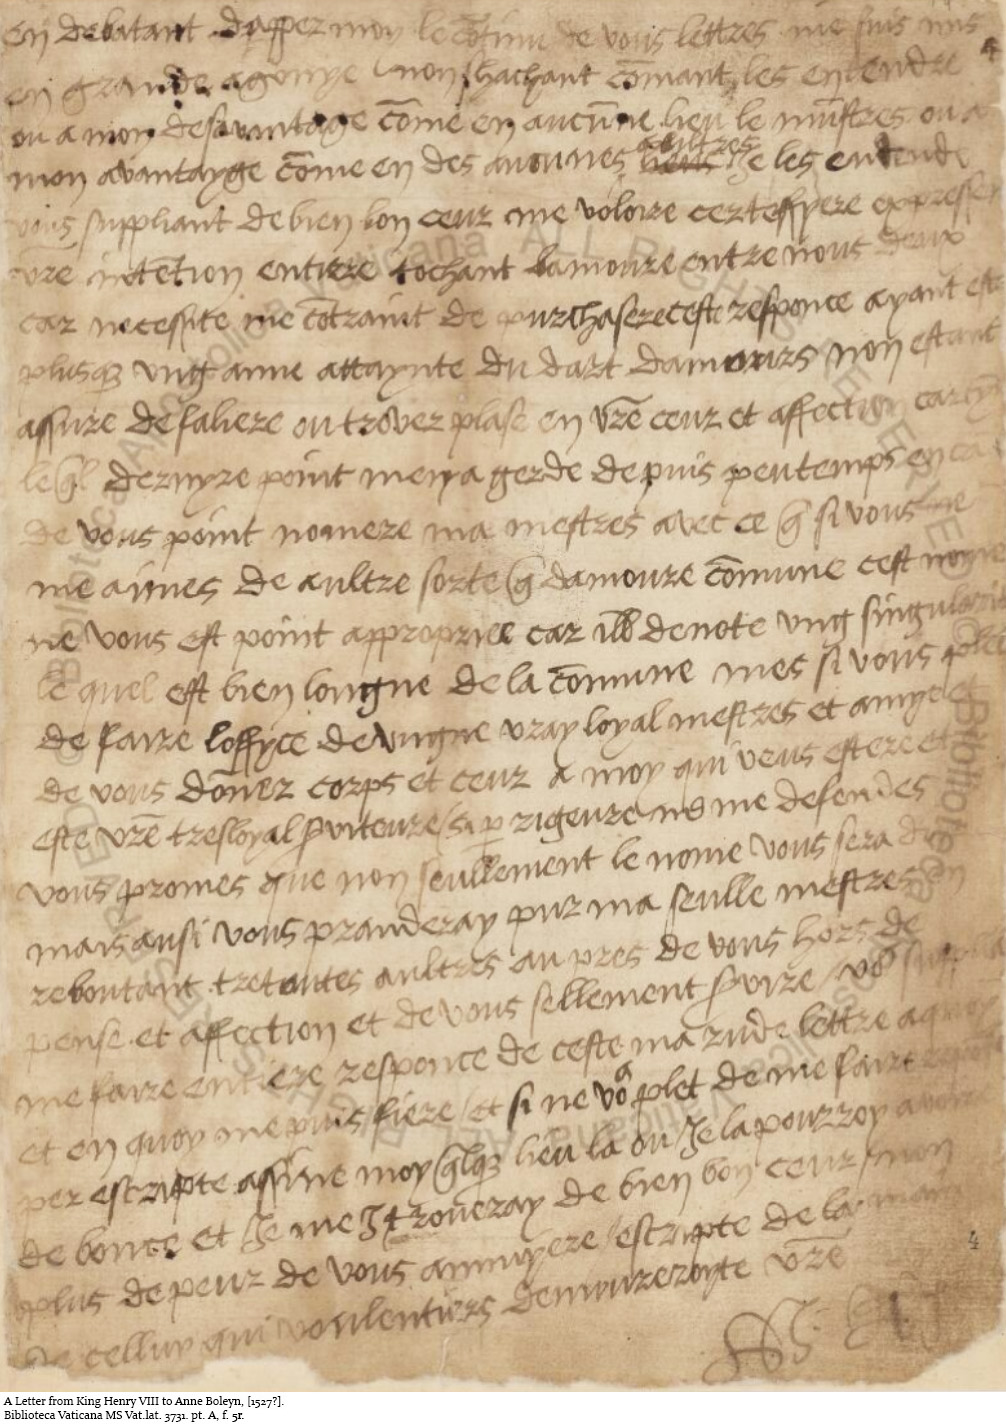 en debatant dapper moy le cōtinu de vous lettres me suis mis
en grande agonye non sachant cōmant les entendre
ou a mon desavantage cōme en aucūne lieu le mūstres ou a
mon avantayge cōme en des aucunes aultres Je les entende
vous suppliant de bien bon ceur me voloire certeffyere expressem
vr̄e intētion entiere tochant lamoure entre nous deux
car necessite me cōtraint de purchasere ceste responce ayant este
plusq̄ ung anne attaynte du dart damours non estant
assure de faliere ou trover plase en vr̄e ceur et affection
leq̄l dernyre point menya gerde depuis peu temps en ca
de vous point nomere ma mestres avec ce q̄ si vous ne
me aimes de aultre sorte q̄ damoure cōmune cest nome
ne vous est point appropriee car ill denote ung singularite
le quel est bien longne de la cōmune mes si vous plet
de faire loffyce de ungne vray loyal mestres et amye et
de vous dōner corps et ceur a moy qui veus estere et
este vr̄e tresloyal serviteure si per rigeure ne me defendes
vous promes que non seullement le nome vous sera
mais ausi vous pranderay pur ma seulle mestres en
reboutant tretoutes aultres aupres de vous hors de
pense et affection et de vous sellement servire
me faire entiere responce de ceste ma rude lettre a quoy
et en quoy me puis fiere et si ne vo⁹ plet de me faire
per escripte assine moy q̄lq̄ lieu la ou Je la pourroy avoire
de bouce et Je me y troveray de bien bon ceur non
plus de peur de vous annuyere escripte de la main
de celluy qui voulentiers demureroyte vr̄e
4
A Letter from King Henry VIII to Anne Boleyn, [1527?].
Biblioteca Vaticana MS Vat.lat. 3731. pt. A, f. 5r.